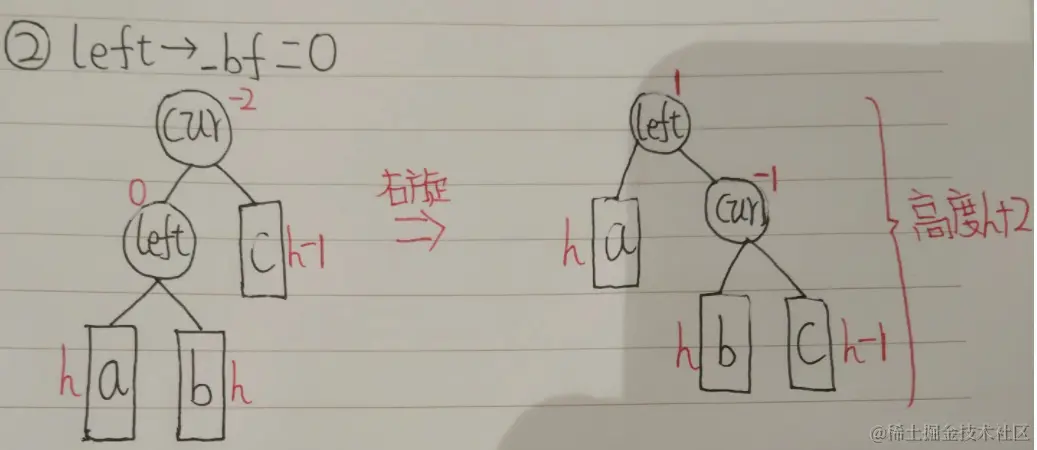 ② left→_bf=0
cur -2
0
left
c h-1
h a
b h
右旋
⇒
1
left
cur -1
h a
h b
c h-1
高度h+2
@稀土掘金技术社区